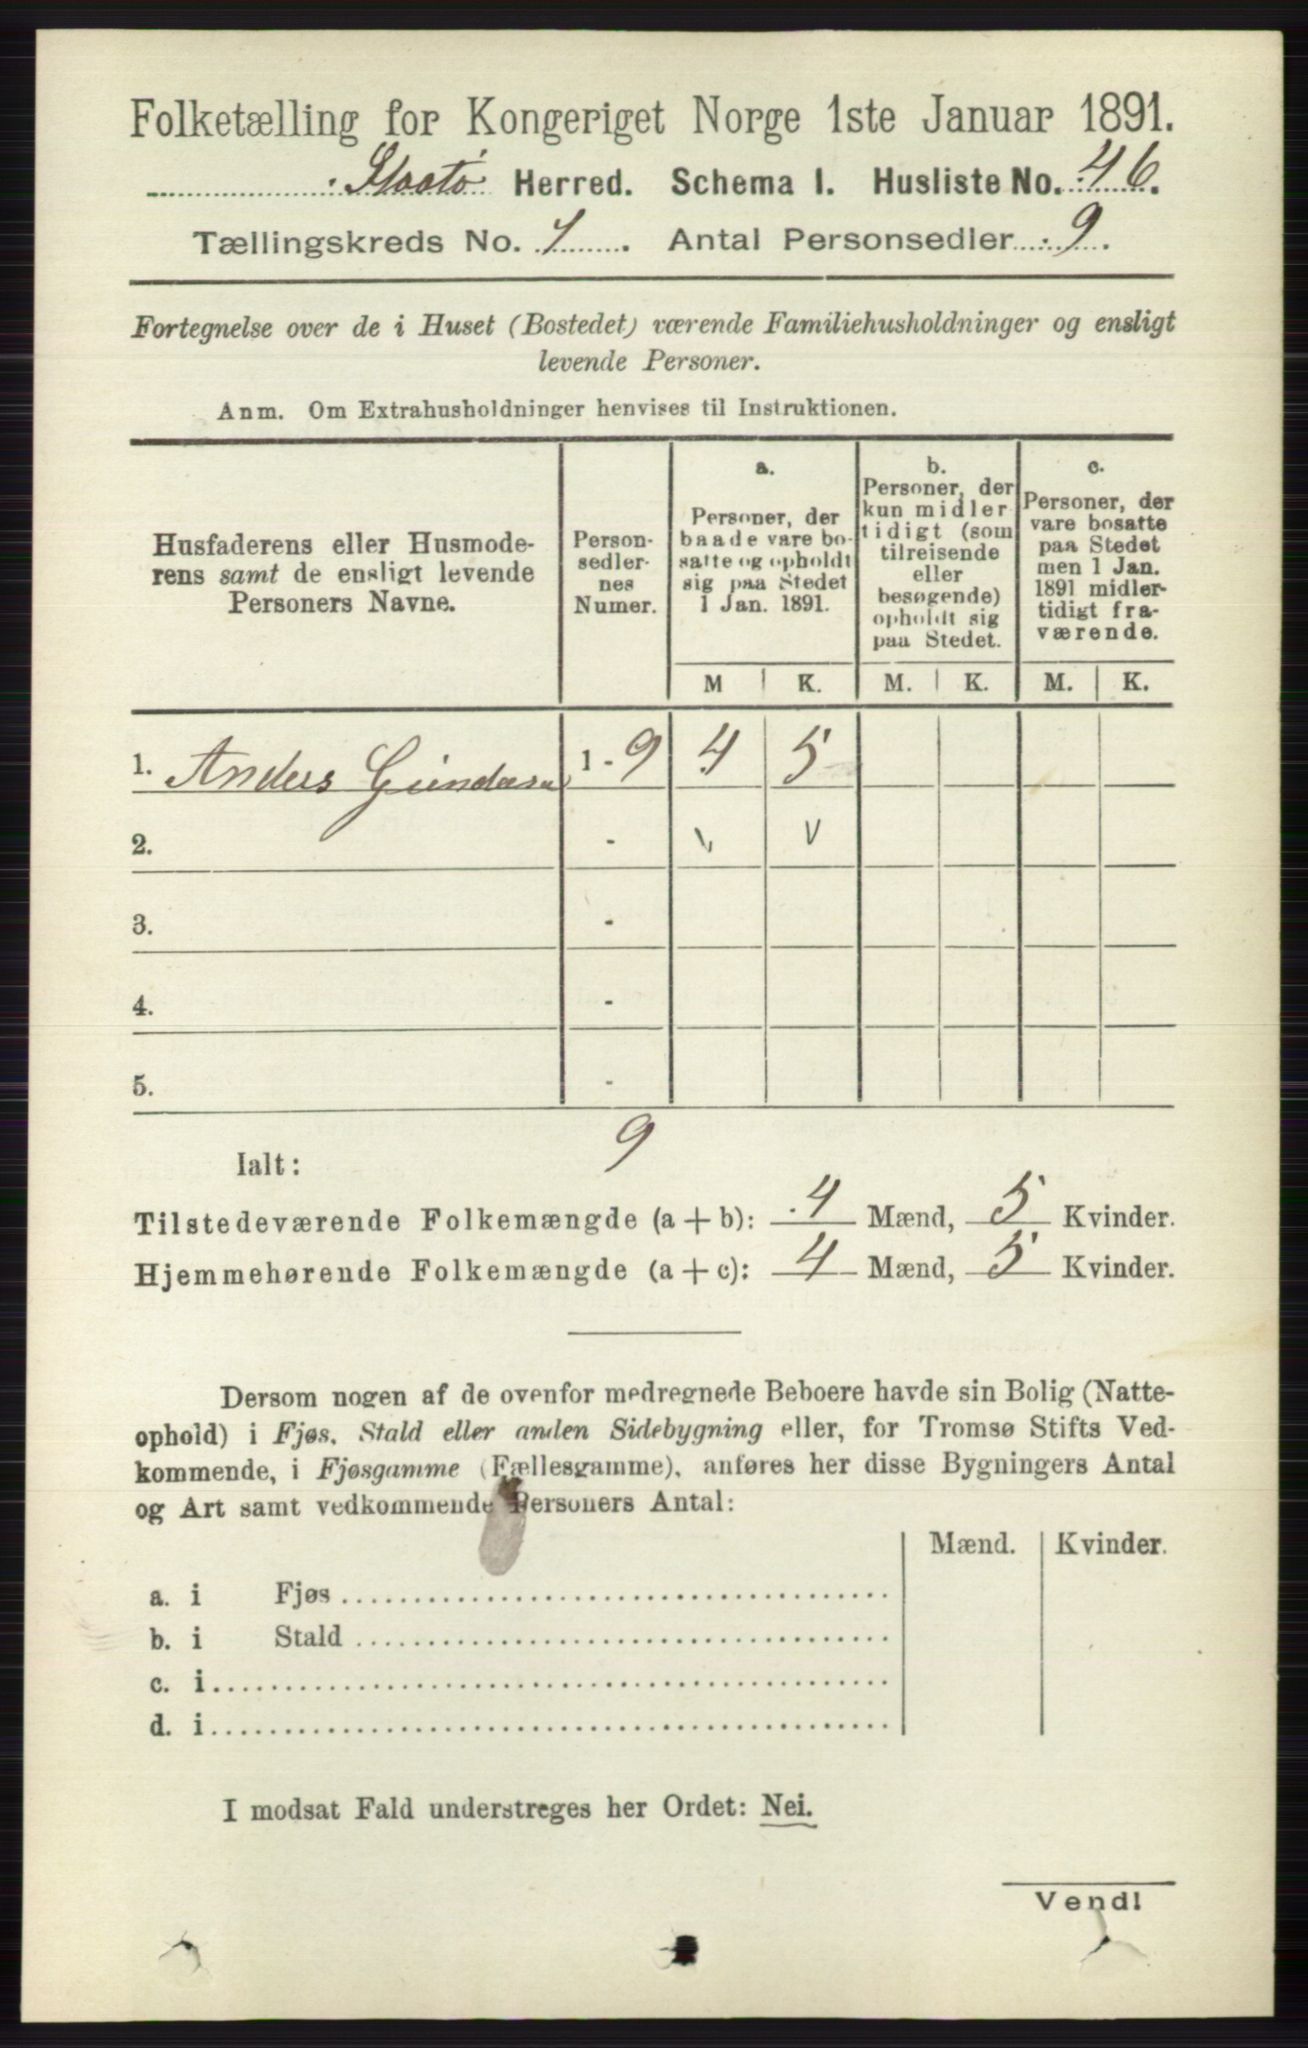 Folketælling for Kongeriget Norge 1ste Januar 1891.
Skaatø Herred. Schema I. Husliste No. 46.
Tællingskreds No. 1. Antal Personsedler 9.
Fortegnelse over de i Huset (Bostedet) værende Familiehusholdninger og ensligt
levende Personer.
Anm. Om Extrahusholdninger henvises til Instruktionen.
Husfaderens eller Husmode-
rens samt de ensligt levende
Personers Navne.
Person-
sedler-
nes
Numer.
a.
Personer, der
baade vare bo-
satte og opholdt
sig paa Stedet
1 Jan. 1891.
b.
Personer, der
kun midler
tidigt (som
tilreisende
eller
besøgende)
opholdt sig
paa Stedet.
c.
Personer, der
vare bosatte
paa Stedet
men 1 Jan.
1891 midler-
tidigt fra-
værende.
M K. M. K. M. K.
1. Anders Gundersen 1 - 9 4 5
2. -
3. -
4. -
5. -
Ialt: 9
Tilstedeværende Folkemængde (a + b): 4 Mænd, 5 Kvinder.
Hjemmehørende Folkemængde (a + c): 4 Mænd, 5 Kvinder.
Dersom nogen af de ovenfor medregnede Beboere havde sin Bolig (Natte-
ophold) i Fjøs, Stald eller anden Sidebygning eller, for Tromsø Stifts Ved-
kommende, i Fjøsgamme (Fællesgamme), anføres her disse Bygningers Antal
og Art samt vedkommende Personers Antal:
Mænd. Kvinder.
a. i Fjøs
b. i Stald
c. i
d. i
I modsat Fald understreges her Ordet: Nei.
Vend!